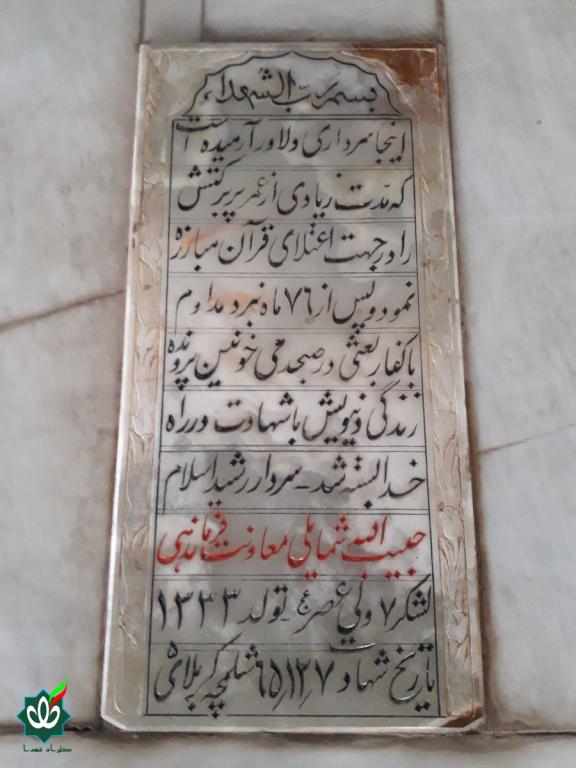 بسم رب الشهداء
اینجا سرداری دلاور آرمیده است
که مدت زیادی از عمر پر برکتش
را در جهت اعتلای قرآن مبارزه
نمود و پس از ۷۶ ماه نبرد مداوم
با کفار بعثی در صبحدمی خونین پرونده
زندگی دنیویش با شهادت در راه
خدا بسته شد - سردار رشید اسلام
حبیب الله شمایلی معاونت فرماندهی
لشکر ۷ ولی عصر عج - تولد ۱۳۳۳
تاریخ شهادت ۶۵٫۱۲٫۷ شلمچه کربلای